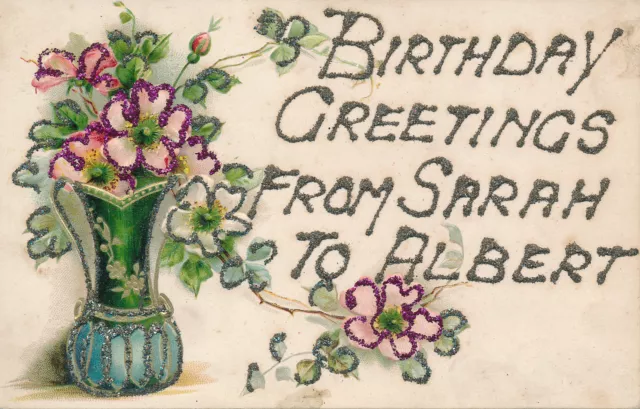 BIRTHDAY
GREETINGS
FROM SARAH
TO ALBERT